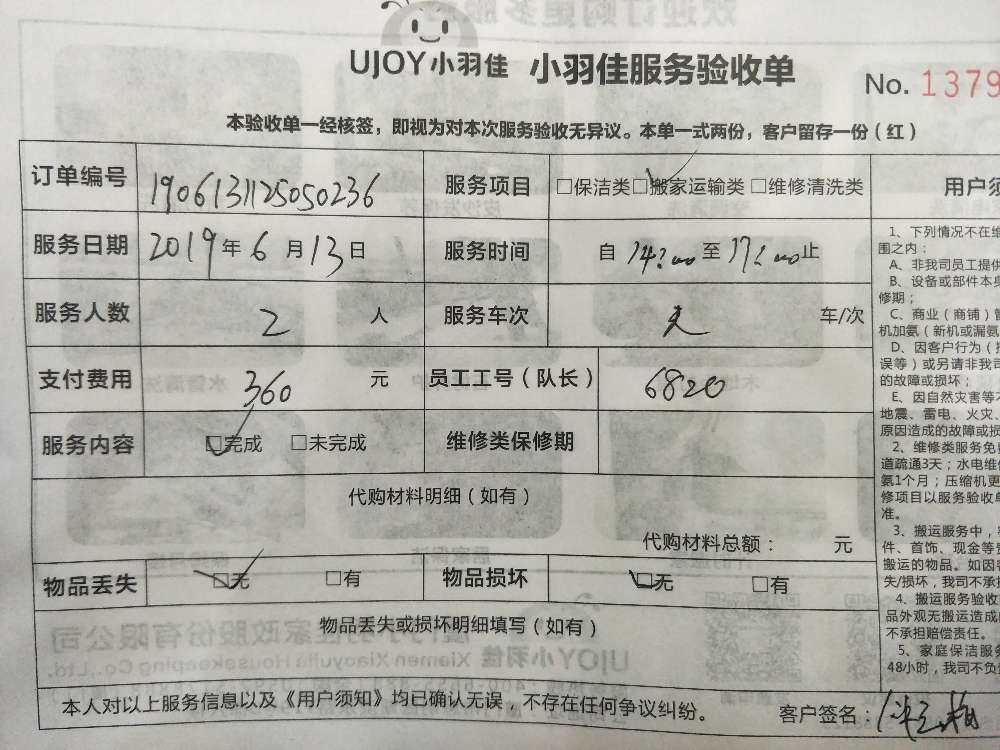 UJOY小羽佳 小羽佳服务验收单
No. 1379
本验收单一经核签，即视为对本次服务验收无异议。本单一式两份，客户留存一份（红）
订单编号 1906131125050236 服务项目 □保洁类 □搬家运输类 □维修清洗类
服务日期 2019年6月13日 服务时间 自14:00至17:00止
服务人数 2人 服务车次 车/次
支付费用 360元 员工工号（队长） 6820
服务内容 □完成 □未完成 维修类保修期
代购材料明细（如有）
代购材料总额： 元
物品丢失 □无 □有 物品损坏 □无 □有
物品丢失或损坏明细填写（如有）
本人对以上服务信息以及《用户须知》均已确认无误，不存在任何争议纠纷。
客户签名：
用户须
1、下列情况不在维
围之内：
A、非我司员工提供
B、设备或部件本身
修期；
C、商业（商铺）管
机加氨（新机或漏氨
D、因客户行为（
误等）或另请非我司
的故障或损坏；
E、因自然灾害等不
地震、雷电、火灾、
原因造成的故障或损
2、维修类服务免费
道疏通3天；水电维
氨1个月；压缩机更
修项目以服务验收单
准。
3、搬运服务中，
件、首饰、现金等贵
搬运的物品。如因客
失/损坏，我司不承担
4、搬运服务验收
品外观无搬运造成
不承担赔偿责任。
5、家庭保洁服务
48小时，我司不负